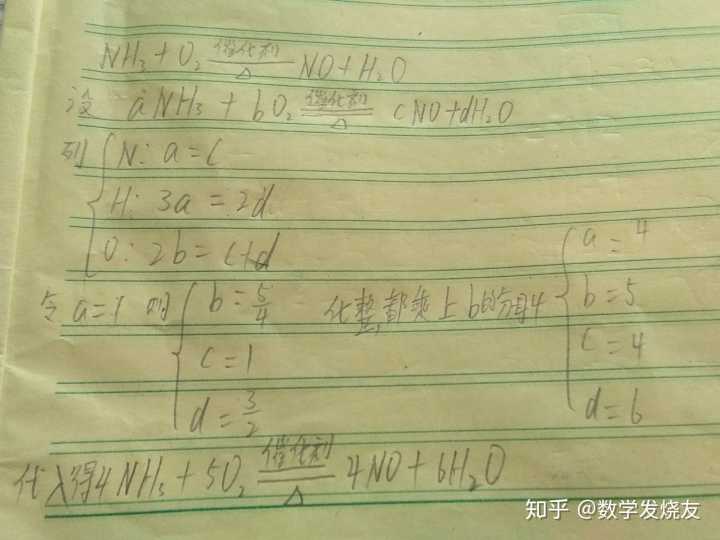 NH₃ + O₂ 催化剂 △ NO + H₂O
设 aNH₃ + bO₂ 催化剂 △ cNO + dH₂O
列 { N: a = c
H: 3a = 2d
O: 2b = c+d
令 a=1 则 { b = 5/4
c = 1
d = 3/2
化整,都乘上b的分母4
{ a = 4
b = 5
c = 4
d = 6
代入得 4NH₃ + 5O₂ 催化剂 △ 4NO + 6H₂O
知乎 @数学发烧友